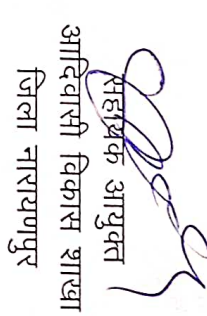 सहायक आयुक्त
आदिवासी विकास शाखा
जिला नारायणपुर